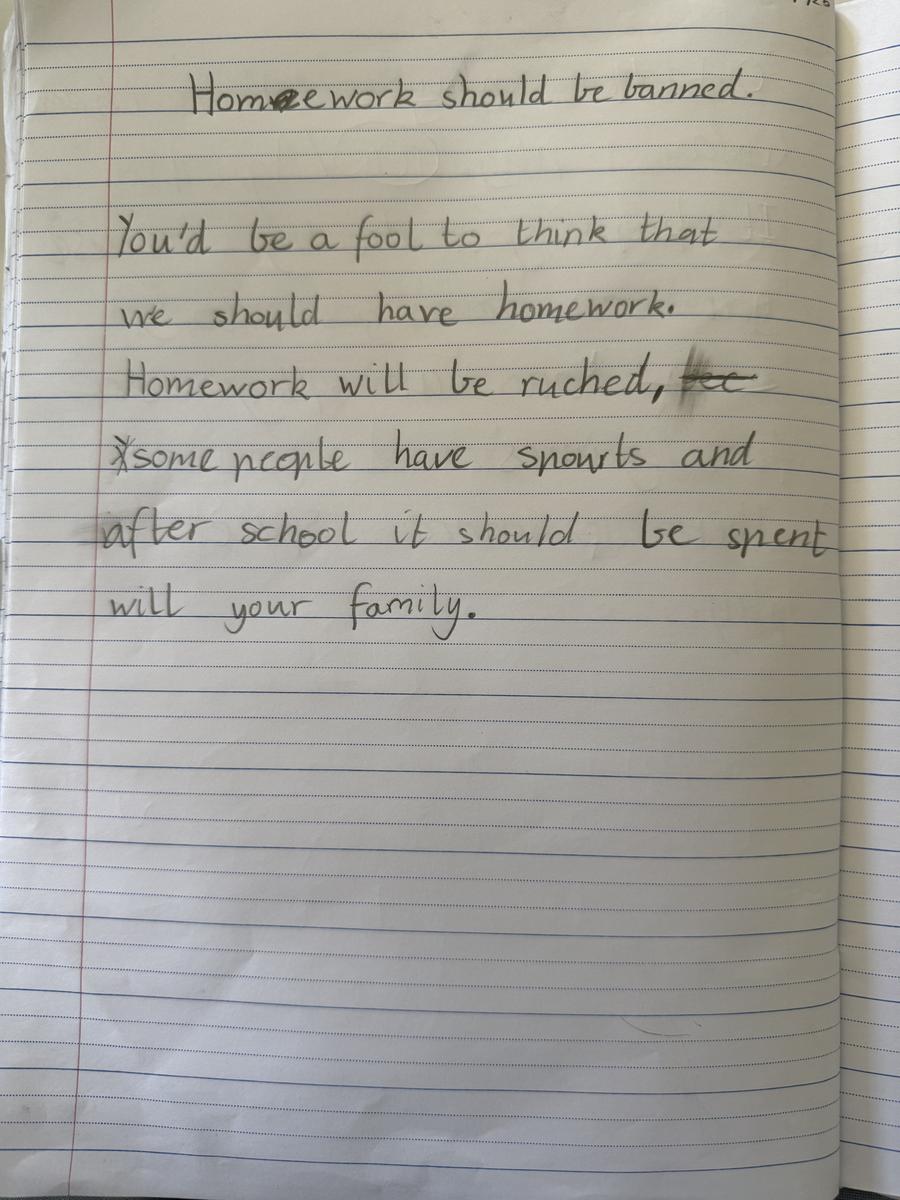 Homeework should be banned.
You'd be a fool to think that
we should have homework.
Homework will be ruched,
some people have spourts and
after school it should be spent
will your family.